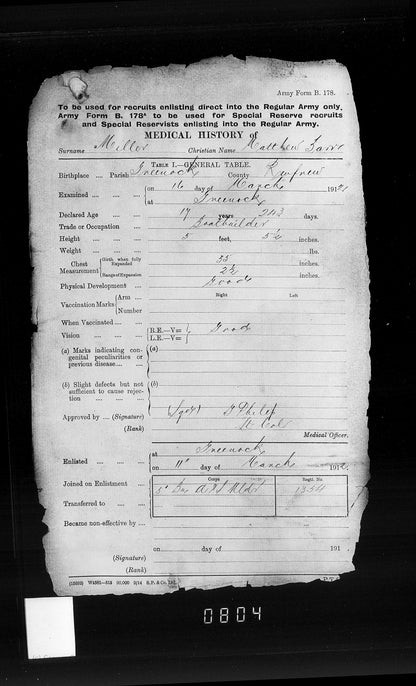 Army Form B. 178.
To be used for recruits enlisting direct into the Regular Army only,
Army Form B. 178A to be used for Special Reserve recruits
and Special Reservists enlisting into the Regular Army.
MEDICAL HISTORY of
Surname Millor Christian Name Matthew
TABLE I.—GENERAL TABLE.
Birthplace ... Parish Greenock County Renfrew
Examined ... on 16 day of March 191
at Greenock
Declared Age 17 years days.
Trade or Occupation Boatbuilder
Height 5 feet, 5½ inches.
Weight lbs.
Chest Measurement { Girth when fully Expanded 35 inches.
Range of Expansion 2½ inches.
Physical Development Good
Right Left
Vaccination Marks { Arm
Number
When Vaccinated
Vision { R.E.—V= Good
L.E.—V=
(a) Marks indicating con-
genital peculiarities or
previous disease (a)
(b) Slight defects but not
sufficient to cause rejec-
tion (b)
Approved by (Signature) (Sgd) J Philip
(Rank) Lt Col
Medical Officer.
at Greenock
Enlisted on 11th day of March 191
Corps Regtl. No.
Joined on Enlistment 5th Bn A & S Hldrs 1334
Transferred to
Became non-effective by
on day of 191
(Signature)
(Rank)
P.T.
0804